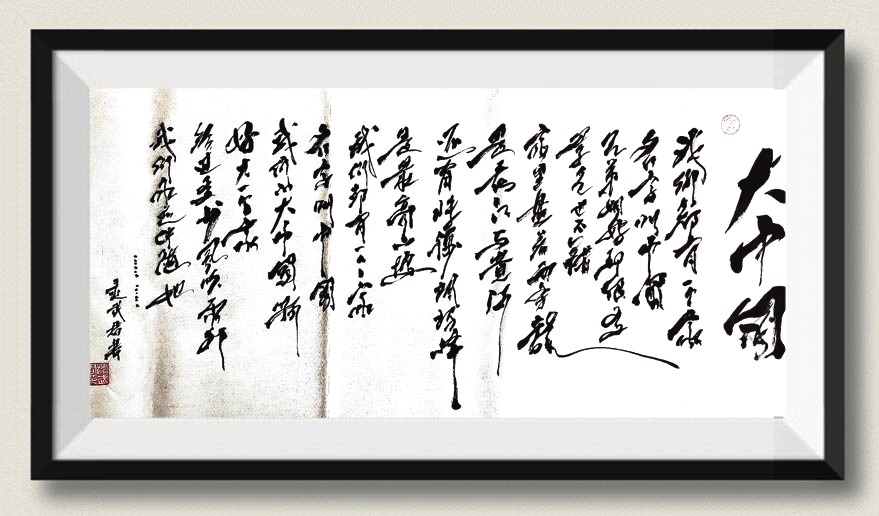 大中国
我们都有一个家
名字叫中国
兄弟姐妹都很多
景色也不错
家里盘着两条龙
是长江与黄河
还有珠穆朗玛峰
是最高山坡
我们都有一个家
名字叫中国
我们的大中国啊
好大一个家
经过多少风吹雨打
我们